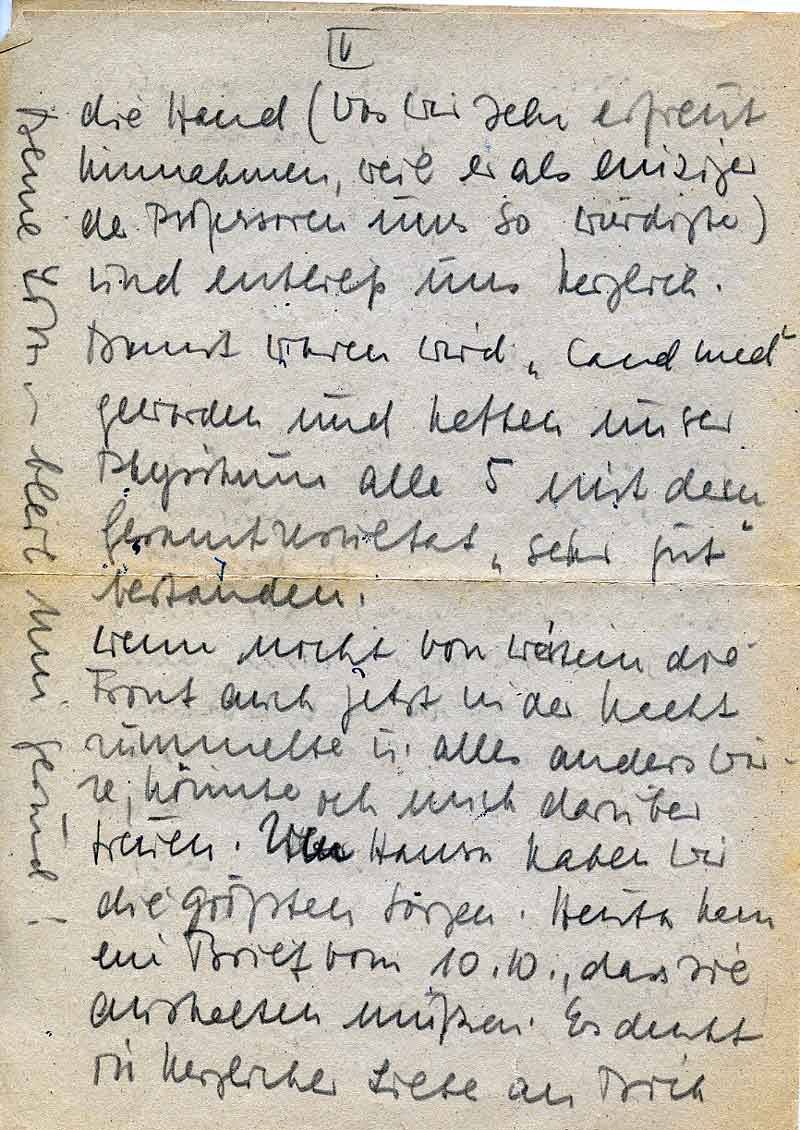 IV
die Hand (was wir sehr erfreut
hinnahmen, weil er als einziger
der Professoren uns so würdigte)
und entließ uns herzlich.
Damit waren wird „Cand med"
geworden und hatten unser
Physikum alle 5 mit dem
Gesamtresultat „sehr gut"
bestanden.
Wenn nicht von weitem die
Front auch jetzt in der Nacht
rummelte u. alles anders wä-
re, könnte ich mich darüber
freuen. Um Hansn haben wir
die größten Sorgen. Heute kam
ein Brief vom 10.10., dass sie
aushalten müßen. Es denkt
in herzlicher Liebe an Dich
Deine – bleib mir gesund!